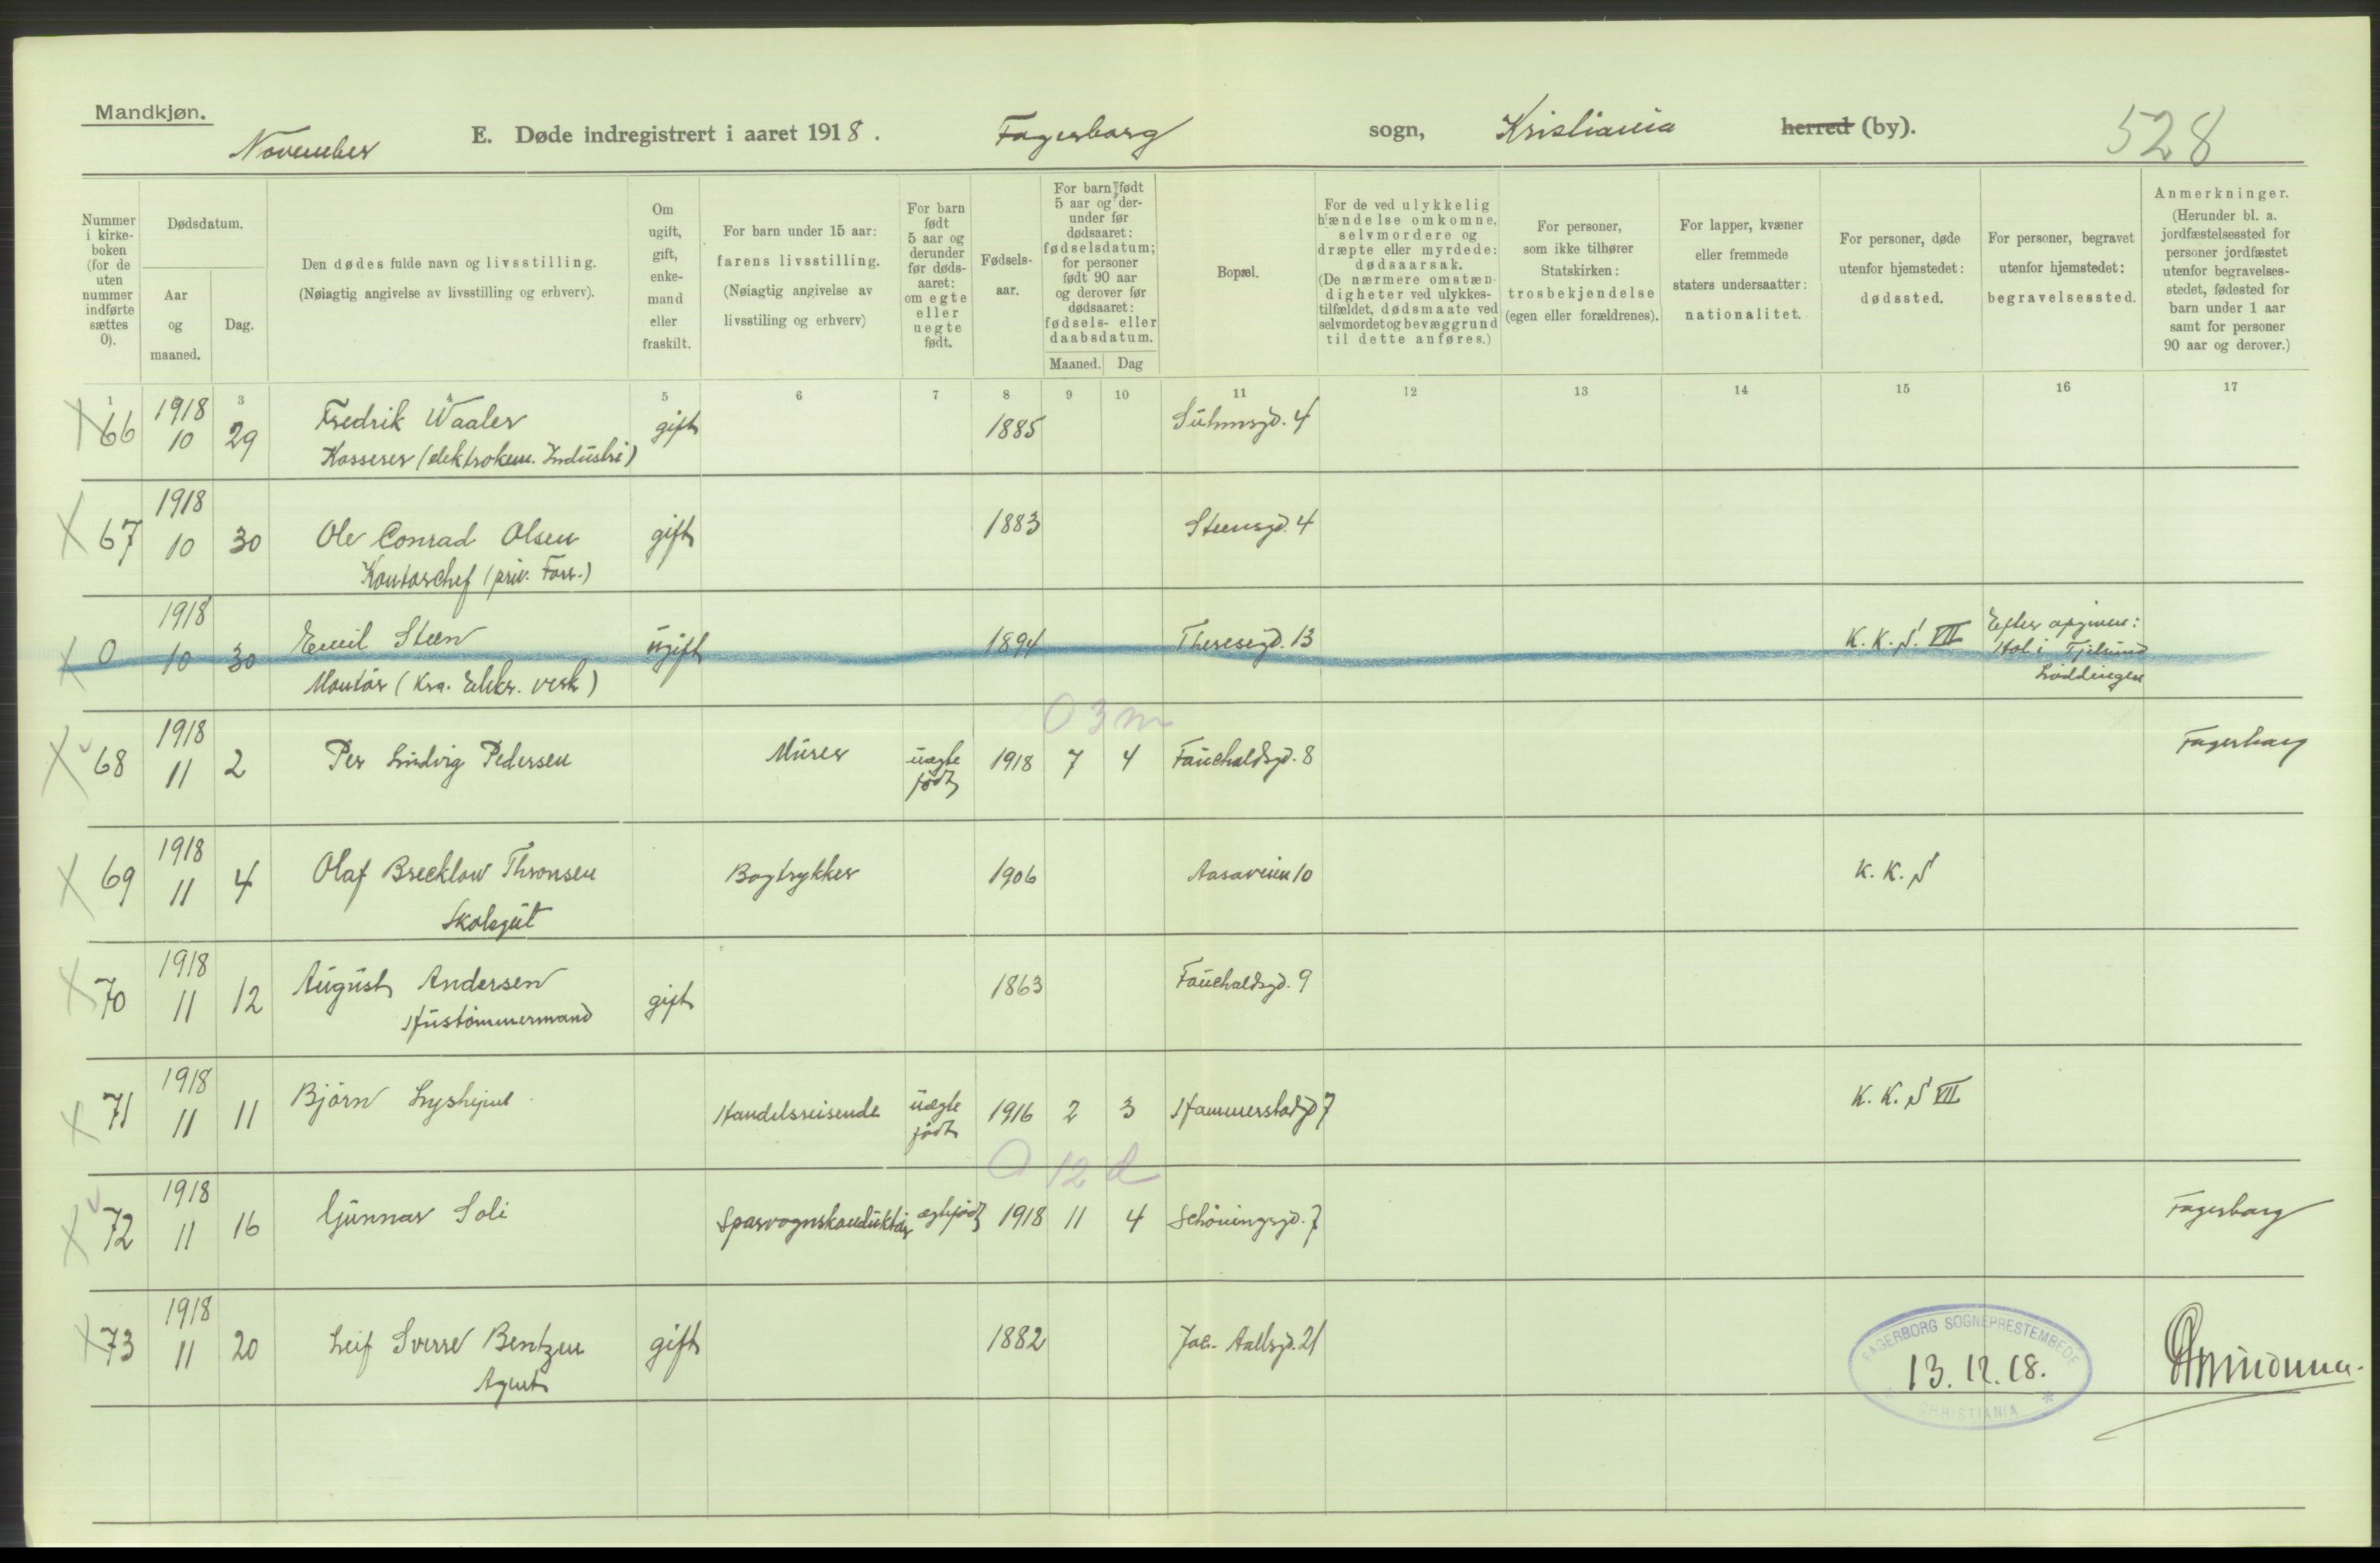 Mandkjøn.
November E. Døde indregistrert i aaret 1918. Fagerborg sogn, Kristiania herred (by). 528
Nummer i kirke- boken (for de uten nummer indførte sættes 0).
Dødsdatum.
Aar og maaned.
Dag.
Den dødes fulde navn og livsstilling.
(Nøiagtig angivelse av livsstilling og erhverv).
Om ugift, gift, enke- mand eller fraskilt.
For barn under 15 aar:
farens livsstilling.
(Nøiagtig angivelse av
livsstiling og erhverv)
For barn født 5 aar og derunder før døds- aaret: om egte eller uegte født.
Fødsels- aar.
For barn født 5 aar og der- under før dødsaaret: fødselsdatum; for personer født 90 aar og derover før dødsaaret: fødsels- eller daabsdatum.
Maaned. Dag
Bopæl.
For de ved ulykkelig hændelse omkomne, selvmordere og dræpte eller myrdede: dødsaarsak. (De nærmere omstæn- digheter ved ulykkes- tilfældet, dødsmaate ved selvmordet og bevæggrund til dette anføres.)
For personer, som ikke tilhører Statskirken: trosbekjendelse (egen eller forældrenes).
For lapper, kvæner eller fremmede staters undersaatter: nationalitet.
For personer, døde utenfor hjemstedet: dødssted.
For personer, begravet utenfor hjemstedet: begravelsessted.
Anmerkninger.
(Herunder bl. a. jordfæstelsessted for personer jordfæstet utenfor begravelses- stedet, fødested for barn under 1 aar samt for personer 90 aar og derover.)
1 3 4 5 6 7 8 9 10 11 12 13 14 15 16 17
X 66 1918 10 29 Fredrik Waaler gift 1885 Suhmsgd. 4
Kasserer (elektrokem. Industri)
X 67 1918 10 30 Ole Conrad Olsen gift 1883 Steensgd. 4
Kontorchef (priv. Forr.)
X 0 1918 10 30 Emil Steen ugift 1894 Theresesgd. 13 K. K. S. VII Efter opgivende:
Montør (Kra. Elektr. verk) Hol i Tjelsund
Lødingen
0 3 m
X v 68 1918 11 2 Per Ludvig Pedersen Murer uægte født 1918 7 4 Fauchaldsgd. 8 Fagerborg
X 69 1918 11 4 Olaf Brecklow Thronsen Bogtrykker 1906 Aasaveien 10 K. K. S
Skolegut
X 70 1918 11 12 August Andersen gift 1863 Fauchaldsgd. 9
Hustømmermand
X 71 1918 11 11 Bjørn Lyshjem Handelsreisende uægte født 1916 2 3 Hammerstadgd 7 K. K. S VII
0 12 d
X v 72 1918 11 16 Gunnar Soli Sporvognskonduktør ægtefødt 1918 11 4 Schøningsgd. 7 Fagerborg
X 73 1918 11 20 Leif Sverre Bentzen gift 1882 Jac. Aallsgd. 21
Agent
FAGERBORG SOGNEPRESTEMBEDE
13. 12. 18.
CHRISTIANIA